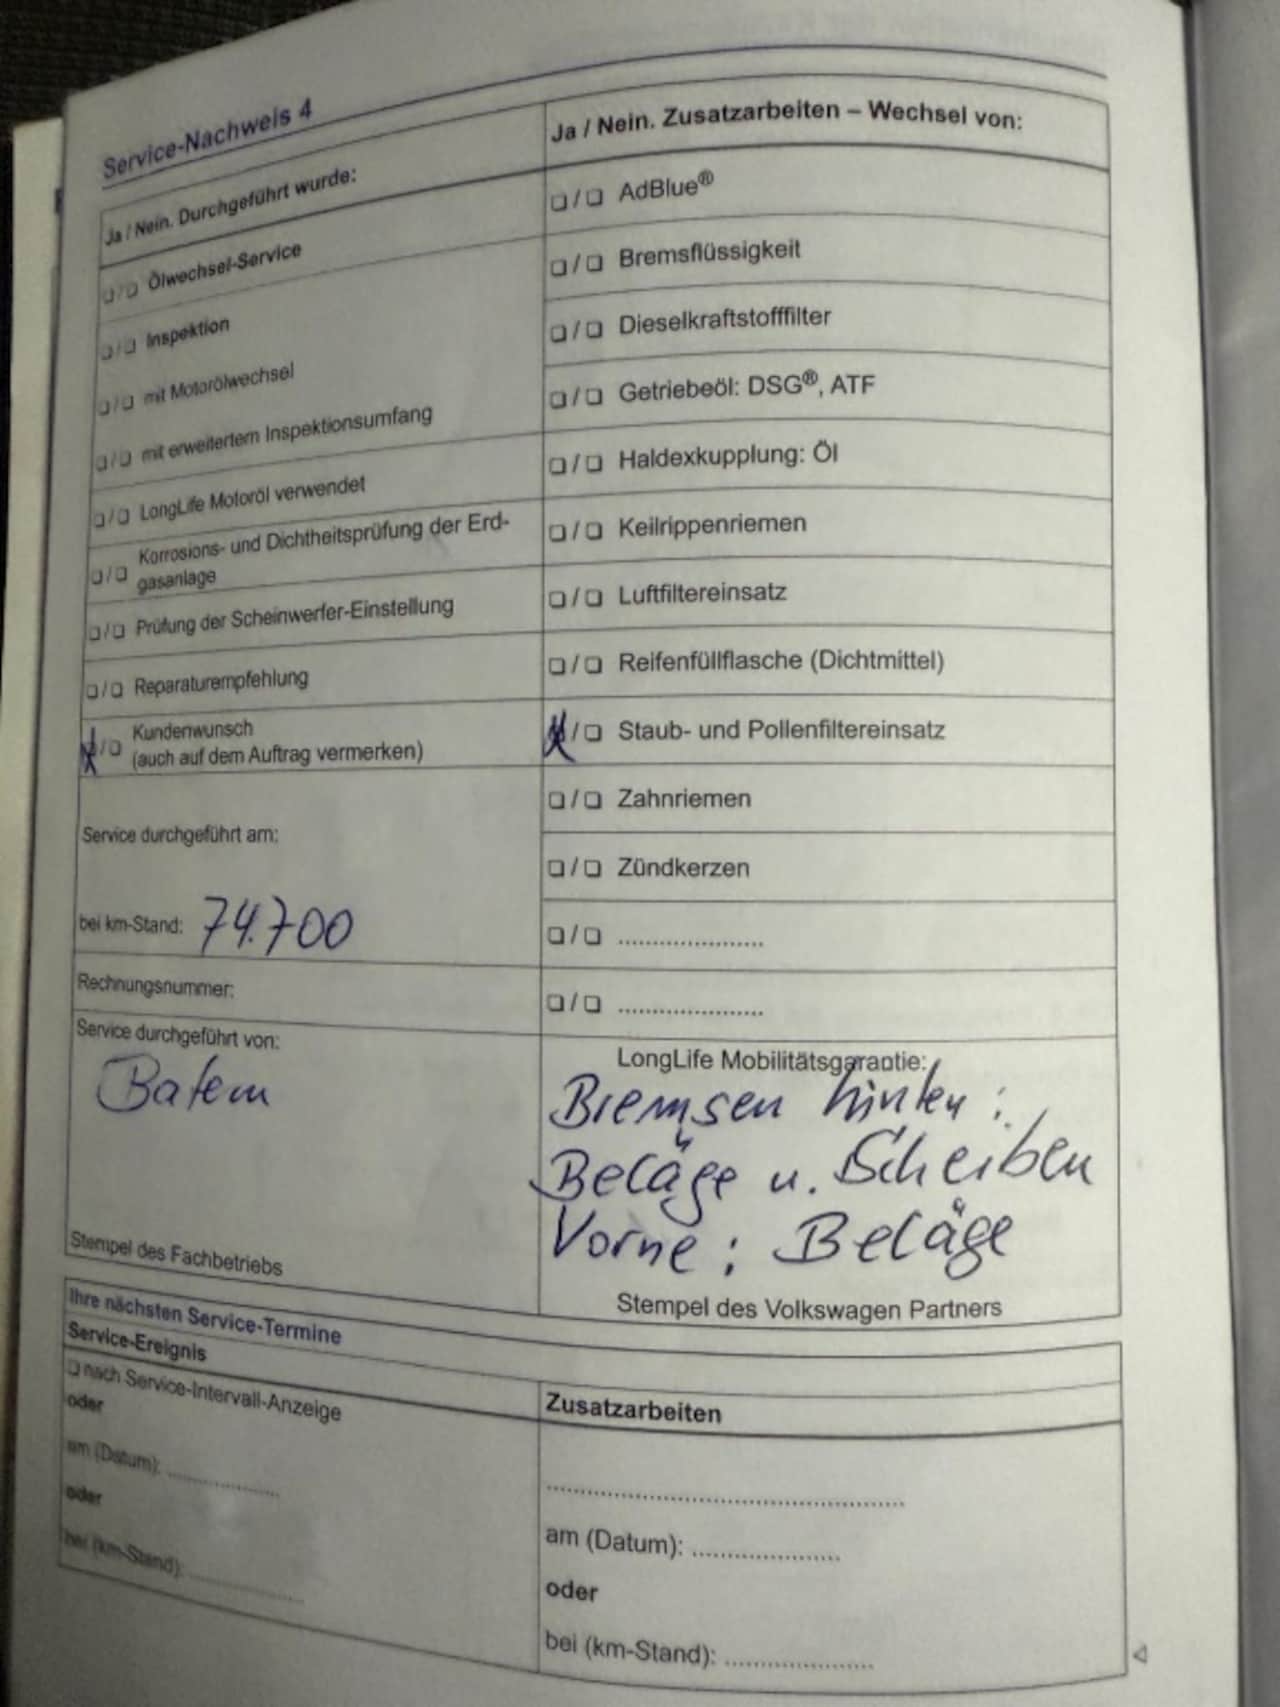 Service-Nachweis 4
Ja / Nein. Durchgeführt wurde:
❑ / ❑ Ölwechsel-Service
❑ / ❑ Inspektion
❑ / ❑ mit Motorölwechsel
❑ / ❑ mit erweitertem Inspektionsumfang
❑ / ❑ LongLife Motoröl verwendet
❑ / ❑ Korrosions- und Dichtheitsprüfung der Erd-
gasanlage
❑ / ❑ Prüfung der Scheinwerfer-Einstellung
❑ / ❑ Reparaturempfehlung
Kundenwunsch
☒ / ❑ (auch auf dem Auftrag vermerken)
Service durchgeführt am:
bei km-Stand: 74.700
Rechnungsnummer:
Service durchgeführt von:
Stempel des Fachbetriebs
Ja / Nein. Zusatzarbeiten – Wechsel von:
❑ / ❑ AdBlue®
❑ / ❑ Bremsflüssigkeit
❑ / ❑ Dieselkraftstofffilter
❑ / ❑ Getriebeöl: DSG®, ATF
❑ / ❑ Haldexkupplung: Öl
❑ / ❑ Keilrippenriemen
❑ / ❑ Luftfiltereinsatz
❑ / ❑ Reifenfüllflasche (Dichtmittel)
☒ / ❑ Staub- und Pollenfiltereinsatz
❑ / ❑ Zahnriemen
❑ / ❑ Zündkerzen
❑ / ❑ ......................
❑ / ❑ ......................
LongLife Mobilitätsgarantie:
Bremsen hinten :
Beläge u. Scheiben
Vorne : Beläge
Stempel des Volkswagen Partners
Ihre nächsten Service-Termine
Service-Ereignis
❑ nach Service-Intervall-Anzeige
oder
am (Datum): .................
oder
bei (km-Stand): .................
Zusatzarbeiten
......................................................
am (Datum): ......................
oder
bei (km-Stand): ......................